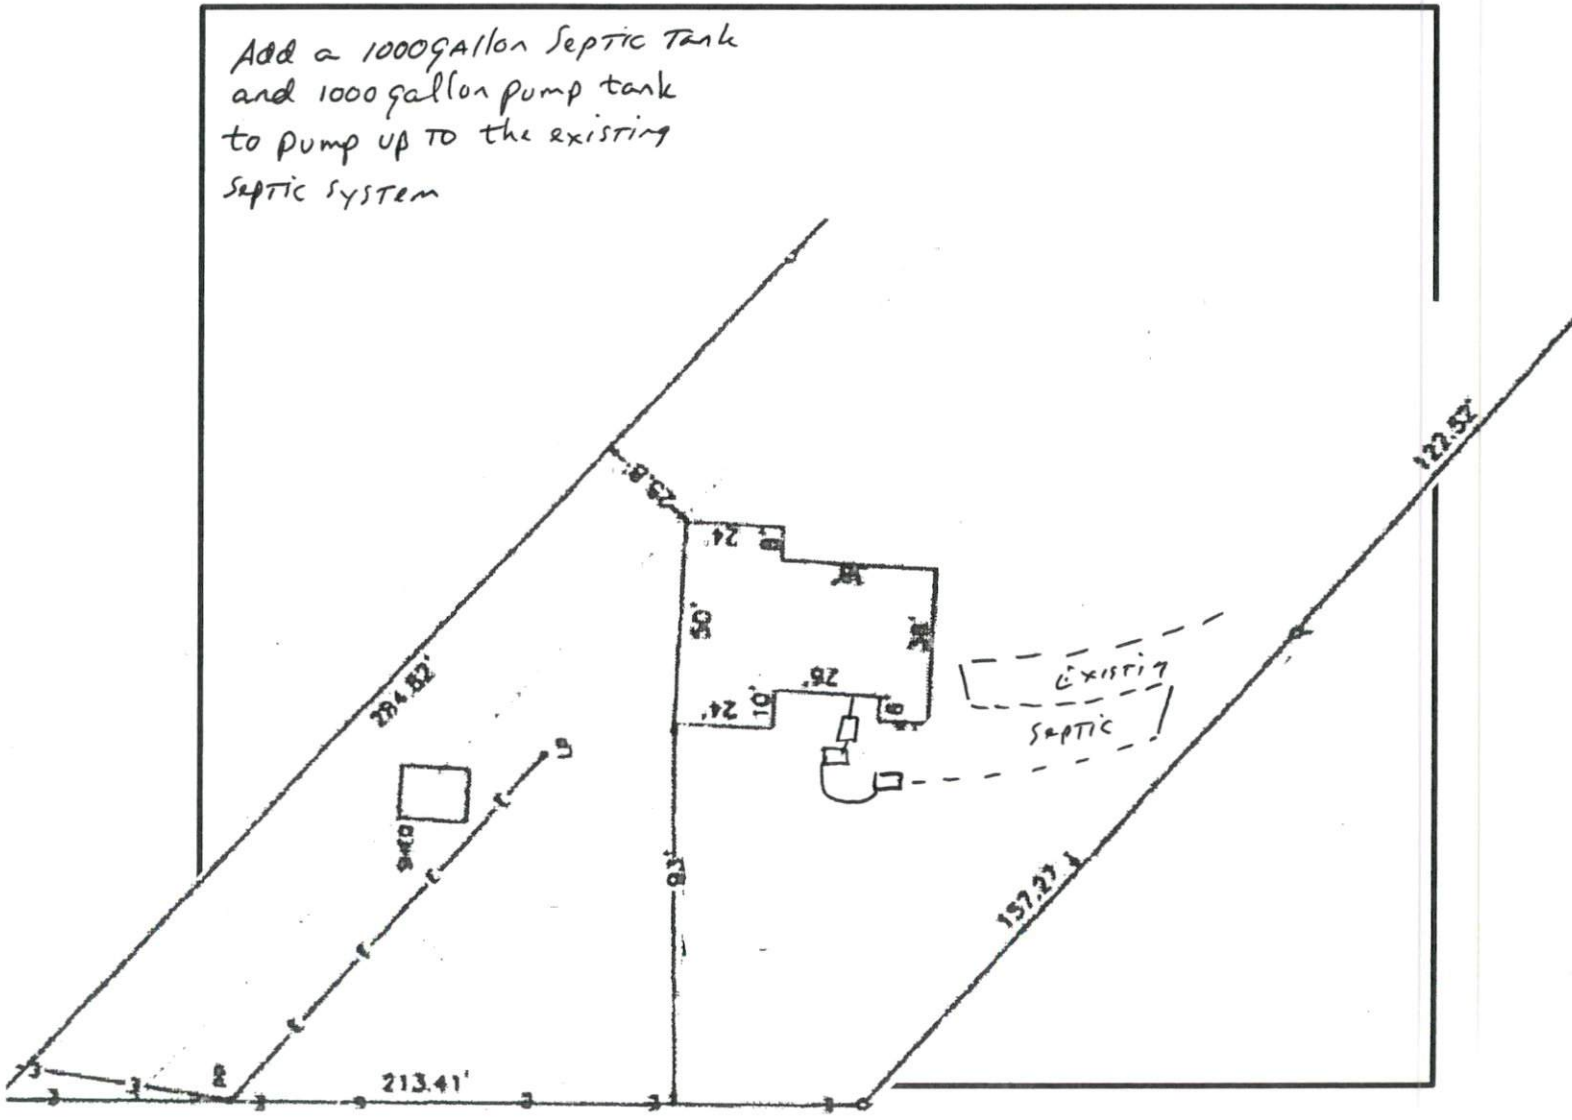 Add a 1000 gallon Septic Tank
and 1000 gallon pump tank
to pump up To the existing
Septic System
122.52'
24'
50'
24'
10'
Existin
Septic
284.82'
93'
157.27'
PP
213.41'